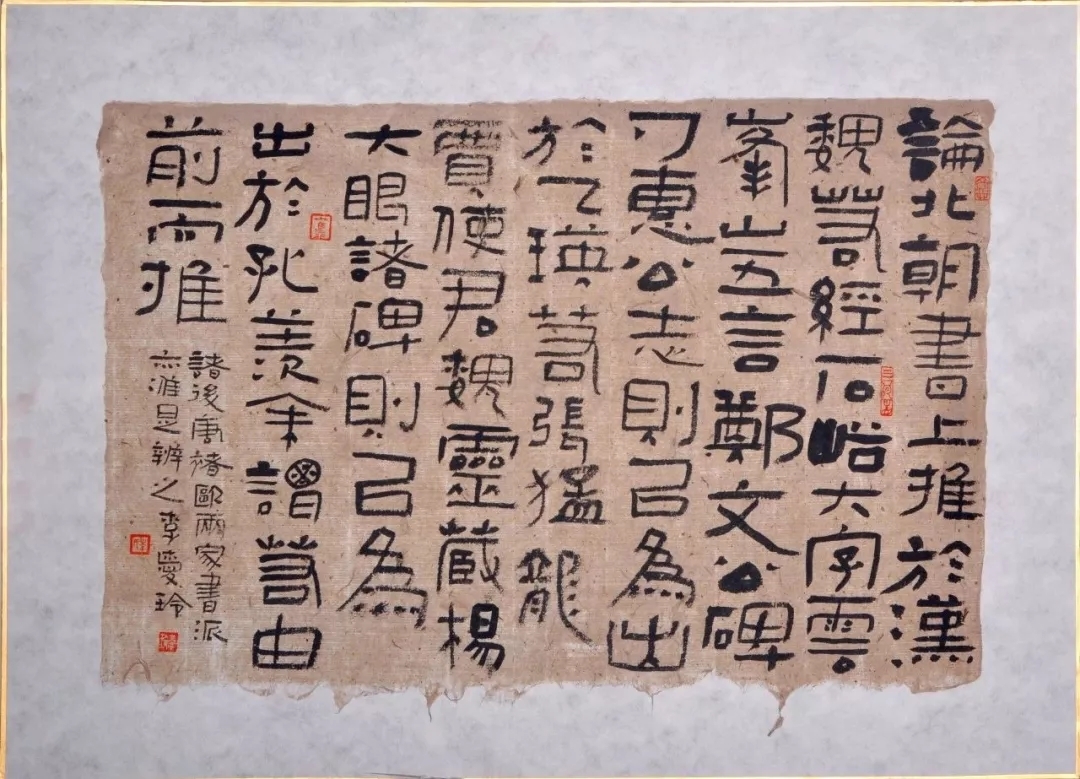 論北朝書上推於漢
魏若經石峪大字雲
峯山五言鄭文公碑
刁惠公志則已為出
於乙瑛若張猛龍
賈使君魏靈藏楊
大眼諸碑則已為
出於孔羨余謂若由
前而推
諸後唐褚歐兩家書派
亦准是辨之李玲